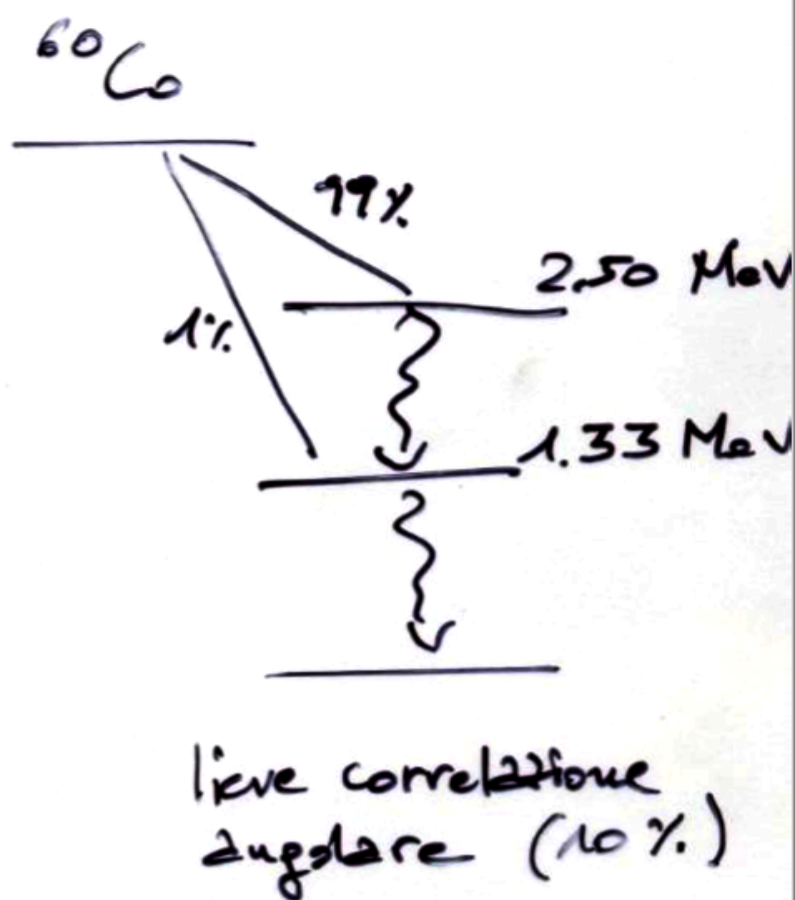 ⁶⁰Co
99%
2.50 MeV
1%
1.33 MeV
lieve correlazione
angolare (10%)